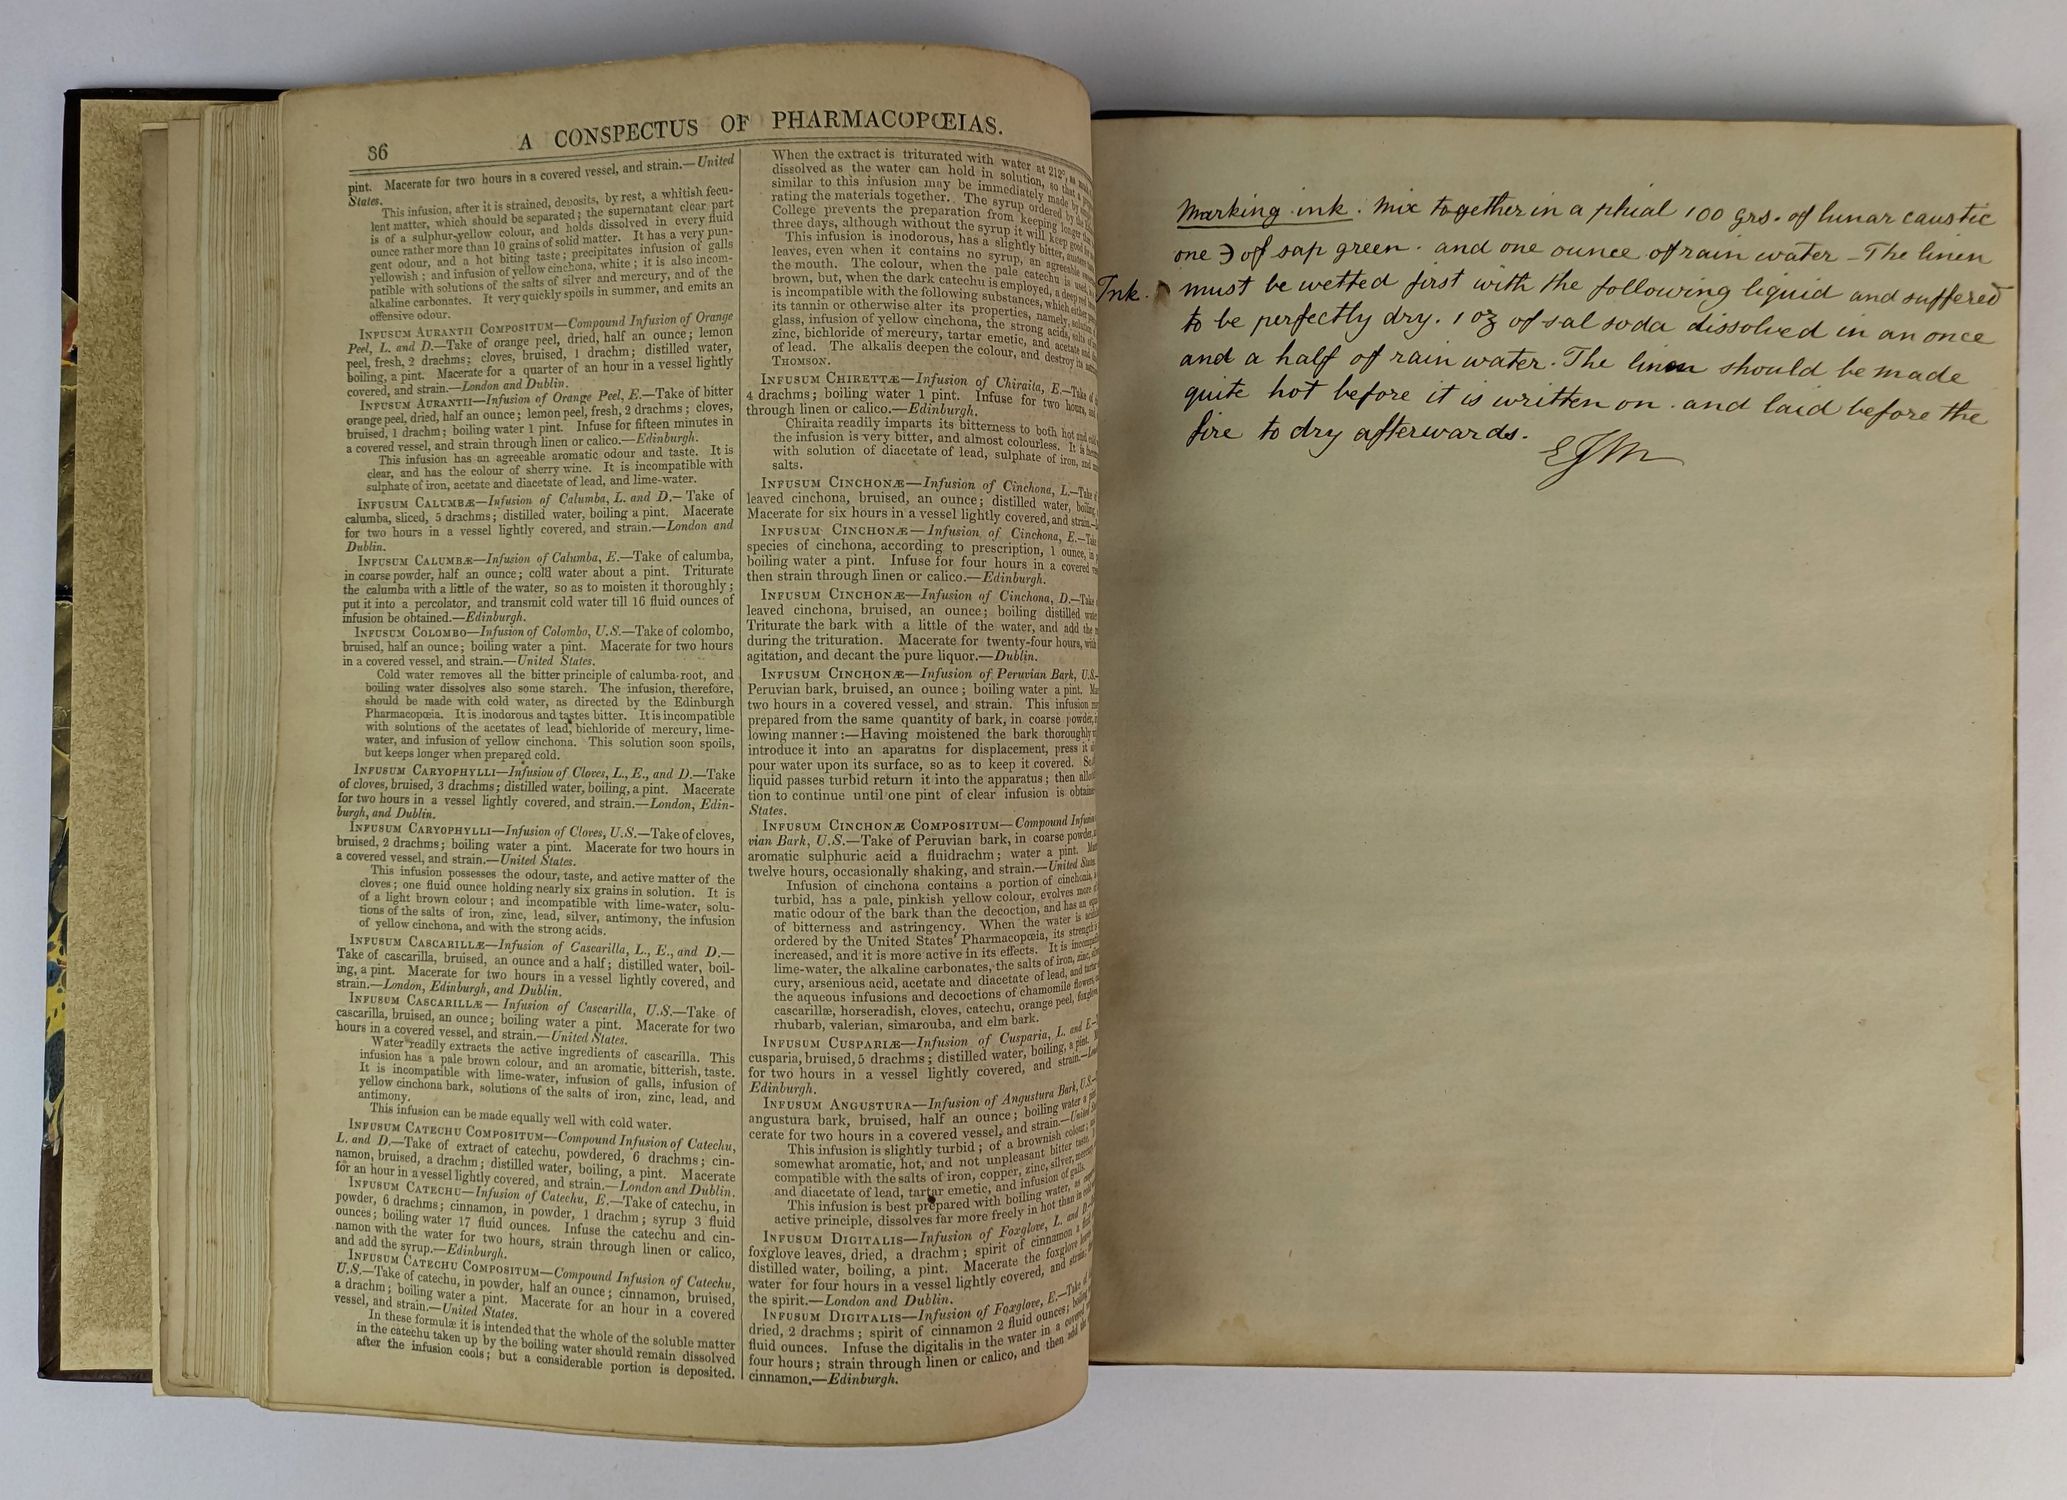 36
A CONSPECTUS OF PHARMACOPŒIAS.
pint. Macerate for two hours in a covered vessel, and strain.—United
States.
This infusion, after it is strained, deposits, by rest, a whitish fecu-
lent matter, which should be separated; the supernatant clear part
is of a sulphur-yellow colour, and holds dissolved in every fluid
ounce rather more than 10 grains of solid matter. It has a very pun-
gent odour, and a hot biting taste; precipitates infusion of galls
yellowish; and infusion of yellow cinchona, white; it is also incom-
patible with solutions of the salts of silver and mercury, and of the
alkaline carbonates. It very quickly spoils in summer, and emits an
offensive odour.
INFUSUM AURANTII COMPOSITUM—Compound Infusion of Orange
Peel, L. and D.—Take of orange peel, dried, half an ounce; lemon
peel, fresh, 2 drachms; cloves, bruised, 1 drachm; distilled water,
boiling, a pint. Macerate for a quarter of an hour in a vessel lightly
covered, and strain.—London and Dublin.
INFUSUM AURANTII—Infusion of Orange Peel, E.—Take of bitter
orange peel, dried, half an ounce; lemon peel, fresh, 2 drachms; cloves,
bruised, 1 drachm; boiling water 1 pint. Infuse for fifteen minutes in
a covered vessel, and strain through linen or calico.—Edinburgh.
This infusion has an agreeable aromatic odour and taste. It is
clear, and has the colour of sherry wine. It is incompatible with
sulphate of iron, acetate and diacetate of lead, and lime-water.
INFUSUM CALUMBÆ—Infusion of Calumba, L. and D.—Take of
calumba, sliced, 5 drachms; distilled water, boiling a pint. Macerate
for two hours in a vessel lightly covered, and strain.—London and
Dublin.
INFUSUM CALUMBÆ—Infusion of Calumba, E.—Take of calumba,
in coarse powder, half an ounce; cold water about a pint. Triturate
the calumba with a little of the water, so as to moisten it thoroughly;
put it into a percolator, and transmit cold water till 16 fluid ounces of
infusion be obtained.—Edinburgh.
INFUSUM COLOMBO—Infusion of Colombo, U.S.—Take of colombo,
bruised, half an ounce; boiling water a pint. Macerate for two hours
in a covered vessel, and strain.—United States.
Cold water removes all the bitter principle of calumba-root, and
boiling water dissolves also some starch. The infusion, therefore,
should be made with cold water, as directed by the Edinburgh
Pharmacopœia. It is inodorous and tastes bitter. It is incompatible
with solutions of the acetates of lead, bichloride of mercury, lime-
water, and infusion of yellow cinchona. This solution soon spoils,
but keeps longer when prepared cold.
INFUSUM CARYOPHYLLI—Infusion of Cloves, L., E., and D.—Take
of cloves, bruised, 3 drachms; distilled water, boiling, a pint. Macerate
for two hours in a vessel lightly covered, and strain.—London, Edin-
burgh, and Dublin.
INFUSUM CARYOPHYLLI—Infusion of Cloves, U.S.—Take of cloves,
bruised, 2 drachms; boiling water a pint. Macerate for two hours in
a covered vessel, and strain.—United States.
This infusion possesses the odour, taste, and active matter of the
cloves; one fluid ounce holding nearly six grains in solution. It is
of a light brown colour; and incompatible with lime-water, solu-
tions of the salts of iron, zinc, lead, silver, antimony, the infusion
of yellow cinchona, and with the strong acids.
INFUSUM CASCARILLÆ—Infusion of Cascarilla, L., E., and D.—
Take of cascarilla, bruised, an ounce and a half; distilled water, boil-
ing, a pint. Macerate for two hours in a vessel lightly covered, and
strain.—London, Edinburgh, and Dublin.
INFUSUM CASCARILLÆ—Infusion of Cascarilla, U.S.—Take of
cascarilla, bruised, an ounce; boiling water a pint. Macerate for two
hours in a covered vessel, and strain.—United States.
Water readily extracts the active ingredients of cascarilla. This
infusion has a pale brown colour, and an aromatic, bitterish, taste.
It is incompatible with lime-water, infusion of galls, infusion of
yellow cinchona bark, solutions of the salts of iron, zinc, lead, and
antimony.
This infusion can be made equally well with cold water.
INFUSUM CATECHU COMPOSITUM—Compound Infusion of Catechu,
L. and D.—Take of extract of catechu, powdered, 6 drachms; cin-
namon, bruised, a drachm; distilled water, boiling, a pint. Macerate
for an hour in a vessel lightly covered, and strain.—London and Dublin.
INFUSUM CATECHU—Infusion of Catechu, E.—Take of catechu, in
powder, 6 drachms; cinnamon, in powder, 1 drachm; syrup 3 fluid
ounces; boiling water 17 fluid ounces. Infuse the catechu and cin-
namon with the water for two hours, strain through linen or calico,
and add the syrup.—Edinburgh.
INFUSUM CATECHU COMPOSITUM—Compound Infusion of Catechu,
U.S.—Take of catechu, in powder, half an ounce; cinnamon, bruised,
a drachm; boiling water a pint. Macerate for an hour in a covered
vessel, and strain.—United States.
In these formulæ it is intended that the whole of the soluble matter
in the catechu taken up by the boiling water should remain dissolved
after the infusion cools; but a considerable portion is deposited.
When the extract is triturated with water at 212°, as much
dissolved as the water can hold in solution, so that a
similar to this infusion may be immediately made by
rating the materials together. The syrup ordered by the
College prevents the preparation from keeping longer than
three days, although without the syrup it will keep good for
This infusion is inodorous, has a slightly bitter,
leaves, even when it contains no syrup, an agreeable
the mouth. The colour, when the pale catechu is used,
brown, but, when the dark catechu is employed, a deep red
is incompatible with the following substances, which either
its tannin or otherwise alter its properties, namely,
glass, infusion of yellow cinchona, the strong acids, salts of
zinc, bichloride of mercury, tartar emetic, and acetate and
of lead. The alkalis deepen the colour, and destroy its
THOMSON.
INFUSUM CHIRETTÆ—Infusion of Chiraita, E.—Take of
4 drachms; boiling water 1 pint. Infuse for two hours, and
through linen or calico.—Edinburgh.
Chiraita readily imparts its bitterness to both hot and
the infusion is very bitter, and almost colourless. It is
with solution of diacetate of lead, sulphate of iron, and
salts.
INFUSUM CINCHONÆ—Infusion of Cinchona, L.—Take of
leaved cinchona, bruised, an ounce; distilled water, boiling,
Macerate for six hours in a vessel lightly covered, and strain.—
INFUSUM CINCHONÆ—Infusion of Cinchona, E.—Take
species of cinchona, according to prescription, 1 ounce, in
boiling water a pint. Infuse for four hours in a covered
then strain through linen or calico.—Edinburgh.
INFUSUM CINCHONÆ—Infusion of Cinchona, D.—Take
leaved cinchona, bruised, an ounce; boiling distilled
Triturate the bark with a little of the water, and add the
during the trituration. Macerate for twenty-four hours, with
agitation, and decant the pure liquor.—Dublin.
INFUSUM CINCHONÆ—Infusion of Peruvian Bark, U.S.—
Peruvian bark, bruised, an ounce; boiling water a pint.
two hours in a covered vessel, and strain. This infusion
prepared from the same quantity of bark, in coarse powder,
lowing manner:—Having moistened the bark thoroughly
introduce it into an aparatus for displacement, press it
pour water upon its surface, so as to keep it covered.
liquid passes turbid return it into the apparatus; then
tion to continue until one pint of clear infusion is
States.
INFUSUM CINCHONÆ COMPOSITUM—Compound Infusion
vian Bark, U.S.—Take of Peruvian bark, in coarse powder,
aromatic sulphuric acid a fluidrachm; water a pint.
twelve hours, occasionally shaking, and strain.—United States.
Infusion of cinchona contains a portion of cinchonia,
turbid, has a pale, pinkish yellow colour, evolves more
matic odour of the bark than the decoction, and has an
of bitterness and astringency. When the water is
ordered by the United States' Pharmacopœia, its strength
increased, and it is more active in its effects. It is
lime-water, the alkaline carbonates, the salts of iron, zinc,
cury, arsenious acid, acetate and diacetate of lead, and
the aqueous infusions and decoctions of chamomile flowers,
cascarillæ, horseradish, cloves, catechu, orange peel,
rhubarb, valerian, simarouba, and elm bark.
INFUSUM CUSPARIÆ—Infusion of Cusparia, L. and E.—
cusparia, bruised, 5 drachms; distilled water, boiling, a pint.
for two hours in a vessel lightly covered, and strain.—
Edinburgh.
INFUSUM ANGUSTURA—Infusion of Angustura Bark, U.S.—
angustura bark, bruised, half an ounce; boiling water a
cerate for two hours in a covered vessel, and strain.—United
This infusion is slightly turbid; of a brownish colour;
somewhat aromatic, hot, and not unpleasant bitter taste.
compatible with the salts of iron, copper, zinc, silver,
and diacetate of lead, tartar emetic, and infusion of galls.
This infusion is best prepared with boiling water, as
active principle, dissolves far more freely in hot than in
INFUSUM DIGITALIS—Infusion of Foxglove, L. and D.—
foxglove leaves, dried, a drachm; spirit of cinnamon a
distilled water, boiling, a pint. Macerate the foxglove
water for four hours in a vessel lightly covered, and strain;
the spirit.—London and Dublin.
INFUSUM DIGITALIS—Infusion of Foxglove, E.—Take of
dried, 2 drachms; spirit of cinnamon 2 fluid ounces;
fluid ounces. Infuse the digitalis in the water in a covered
four hours; strain through linen or calico, and then add the
cinnamon.—Edinburgh.
Marking ink. Mix together in a phial 100 grs. of lunar caustic
one ℈ of sap green. and one ounce of rain water - The linen
Ink. must be wetted first with the following liquid and suffered
to be perfectly dry. 1 oz of sal soda dissolved in an once
and a half of rain water. The linen should be made
quite hot before it is written on. and laid before the
fire to dry afterwards.
EJM